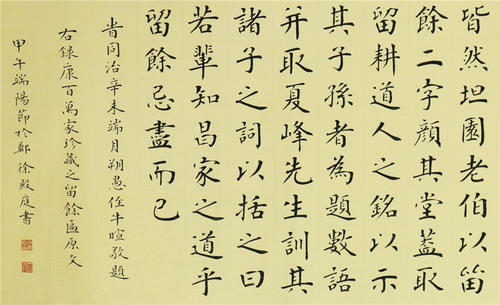 皆然坦園老伯以留
餘二字顏其堂蓋取
留耕道人之銘以示
其子孫者為題數語
并取夏峰先生訓其
諸子之詞以括之曰
若輩知昌家之道乎
留餘忌盡而已
旹同治辛未端月朔愚侄牛暄敬題
右録康百萬家珍藏之留餘匾原文
甲午端陽節於鄭徐殿庭書